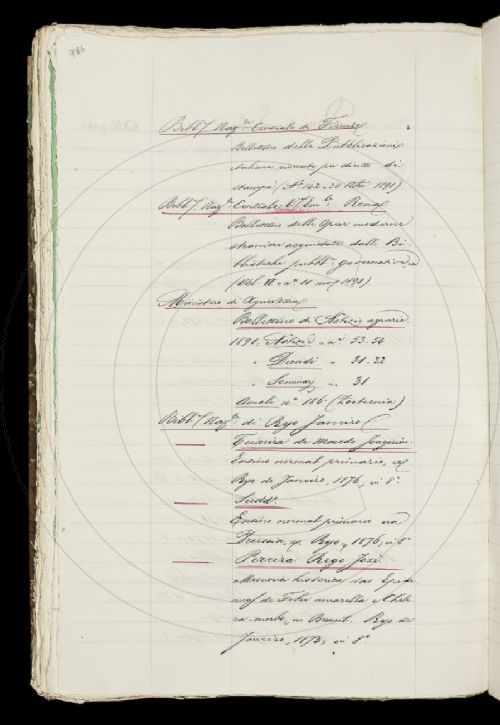 Bibl.ª Naz.le Centrale di Firenze
Bollettino delle Pubblicazioni
italiane ricevute per diritto di
stampa (Nº 142 - 30 1891)
Bibl.ª Naz.le Centrale V. Em.le Roma
Bollettino delle Opere moderne
straniere acquistate dalle Bi-
blioteche pubbl. governative
(Vol. VI. nº 11 1891)
Ministero di Agricoltura
Bollettino di Notizie agrarie.
1891. Notizie nº 53-54
" Decadi " 31-32
" 31
Annali nº 186 (Zootecnia)
Bibl.ª Naz.le di Rio Janeiro
Teixeira de Macedo Joaquim.
Ensino normal primario,
Rio de Janeiro, 1876, in 8º
Sudd.º
Ensino normal primario na
Prussia, Rio, 1876, in 8º
Pereira Rego José
Memoria historica das Epide-
mias de Febre amarella e Chole-
ra-morbo, no Brasil. Rio de
Janeiro, 1873, in 8º